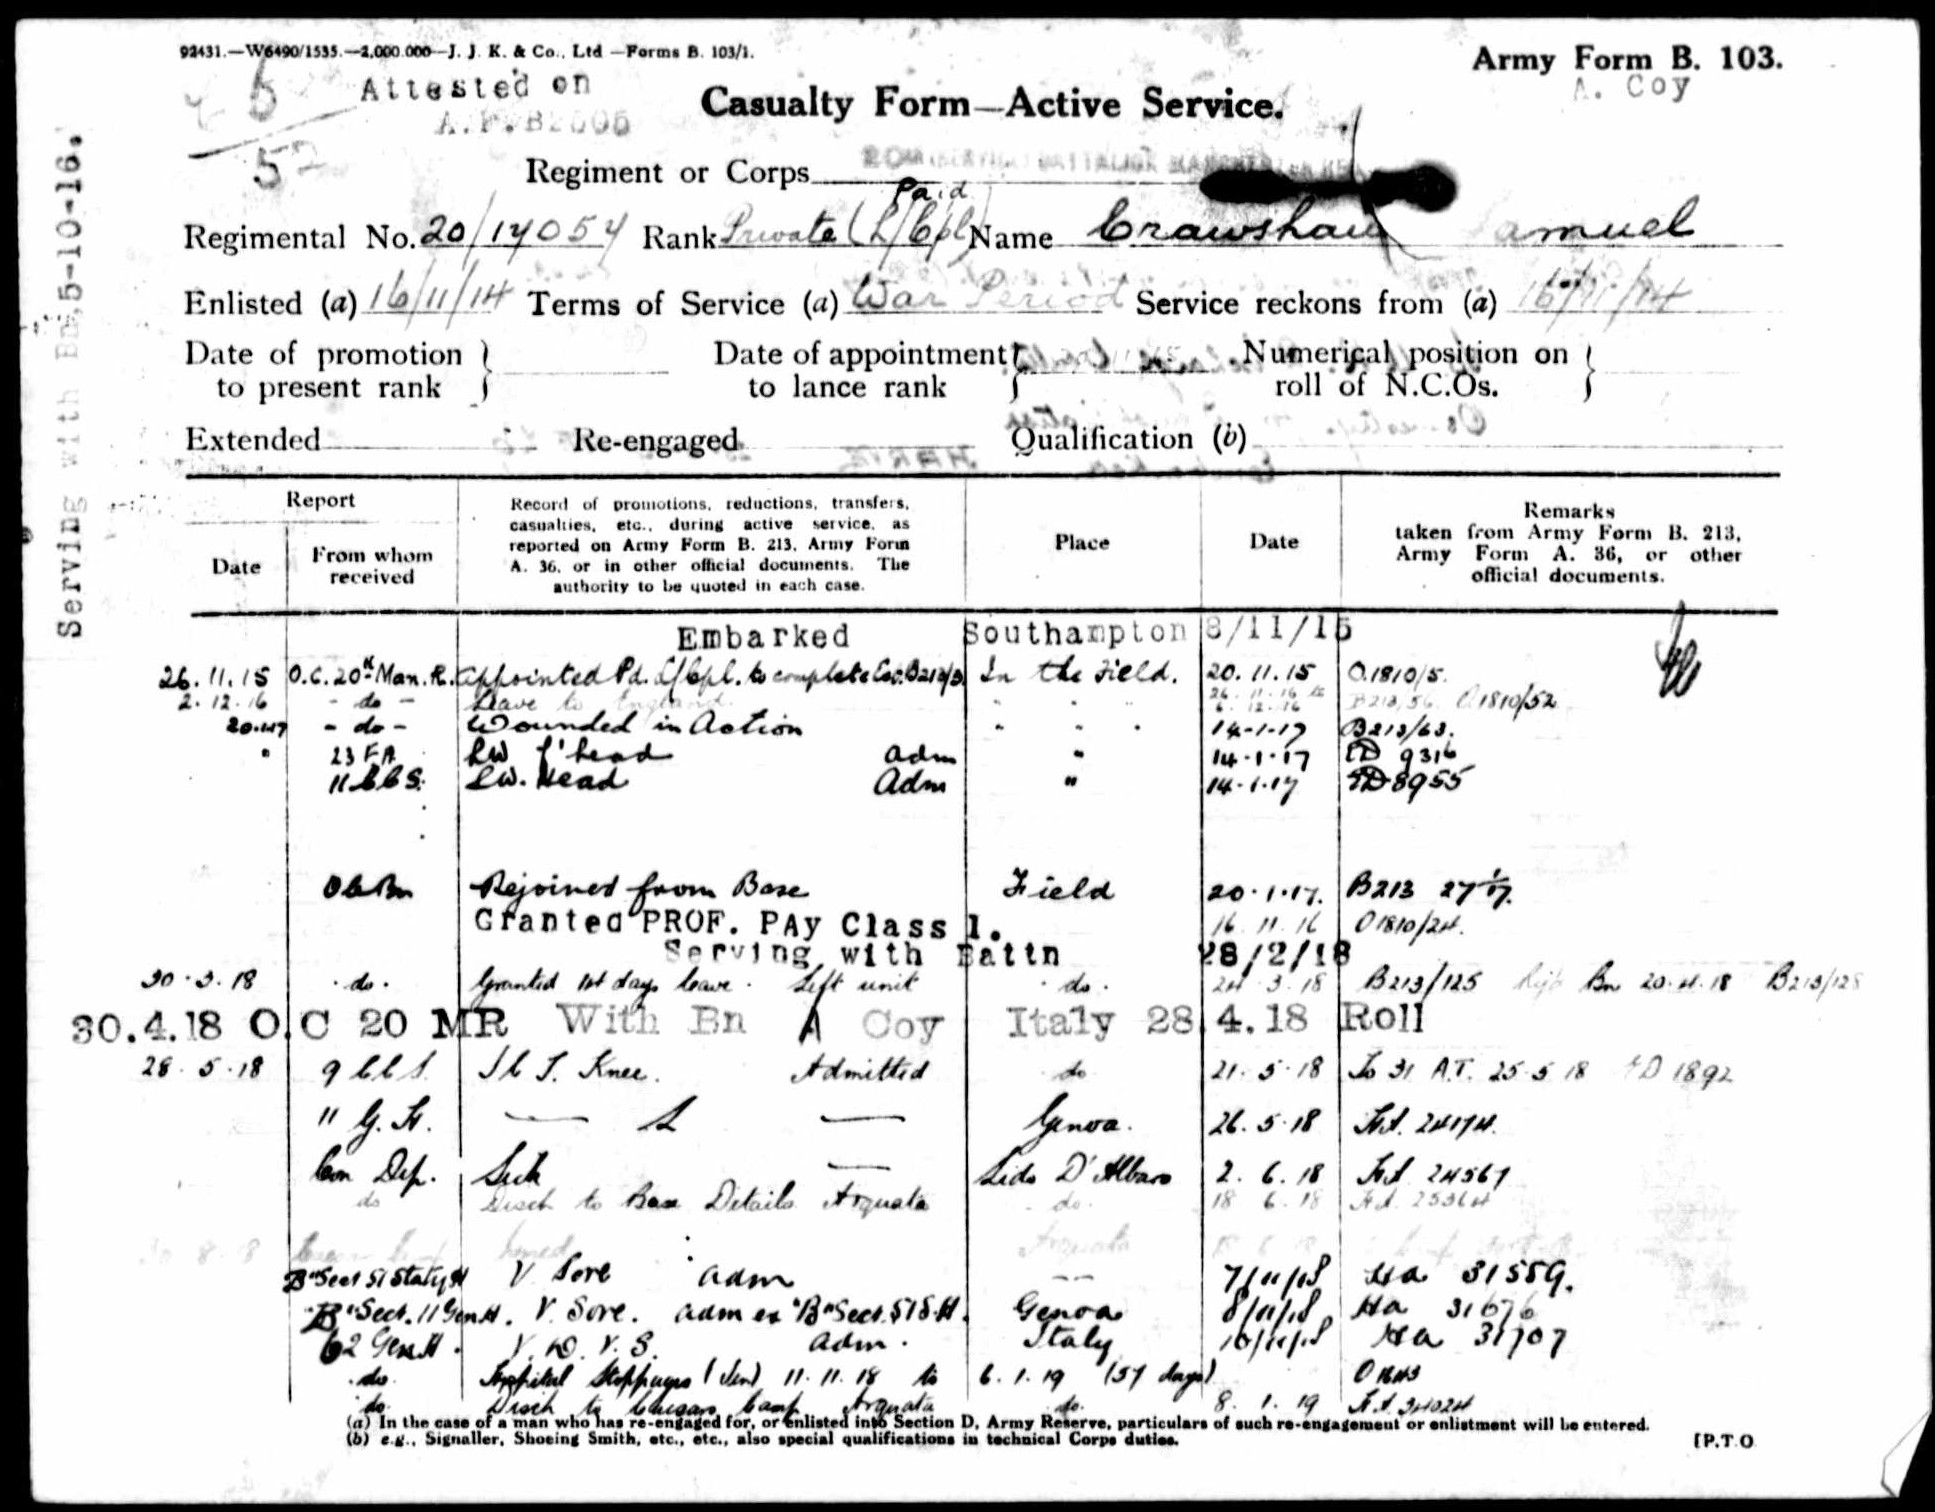 92431.—W6490/1535.—2,000,000—J. J. K. & Co., Ltd —Forms B. 103/1.
Army Form B. 103.
A. Coy
5
Attested on
Casualty Form—Active Service.
52
Regiment or Corps
Paid
Regimental No. 20/17054 Rank Private (L/Cpl) Name Crawshaw Samuel
Enlisted (a) 16/11/14 Terms of Service (a) War Period Service reckons from (a) 16/11/14
Date of promotion to present rank
Date of appointment to lance rank
Numerical position on roll of N.C.Os.
Extended Re-engaged Qualification (b)
Serving with Bn, 5-10-16.
Report
Date
From whom received
Record of promotions, reductions, transfers, casualties, etc., during active service, as reported on Army Form B. 213, Army Form A. 36, or in other official documents. The authority to be quoted in each case.
Place
Date
Remarks taken from Army Form B. 213, Army Form A. 36, or other official documents.
Embarked Southampton 8/11/15
26.11.15 O.C. 20th Man. R. Appointed Pd. L/Cpl. to complete In the Field. 20.11.15 O.1810/5.
2.12.16 - do - Leave to England O1810/52
- do - Wounded in Action 14-1-17 B213/63.
" 23 FA head Adm " 14.1.17 9316
11 CCS. Head Adm " 14.1.17 8955
OC Bn Rejoined from Base Field 20.1.17. B213
Granted PROF. PAy Class 1. 16.11.16 O1810/24.
Serving with Battn 28/2/18
30.3.18 do. Granted 14 days leave. Left unit do. 24.3.18 B213/125 Bn 20.4.18 B213/128
30.4.18 O.C 20 MR With Bn A Coy Italy 28.4.18 Roll
28.5.18 9 CCS. Knee. Admitted do 21.5.18 To 31 A.T. 25.5.18 1892
11 G. H. Genoa. 26.5.18 24174.
Con Dep. Sick Lido D'Albaro 2.6.18 24567
do Disch to Base Details Arquata do. 18 6.18
"B" Sect 51 Staty H V Sore adm 7/11/18 Ha 31559.
"B" Sect. 11 Gen H. V. Sore. adm ex "B" Sect. 51 S.H. Genoa 8/11/18 Ha 31676
62 Gen H. V.D.V.S. adm. Italy 10/11/18 Ha 31707
do. Hospital Stoppages (Ven) 11.11.18 to 6.1.19 (57 days)
do. Disch to Camp Arquata do. 8.1.19
(a) In the case of a man who has re-engaged for, or enlisted into Section D, Army Reserve, particulars of such re-engagement or enlistment will be entered.
(b) e.g., Signaller, Shoeing Smith, etc., etc., also special qualifications in technical Corps duties.
[P.T.O